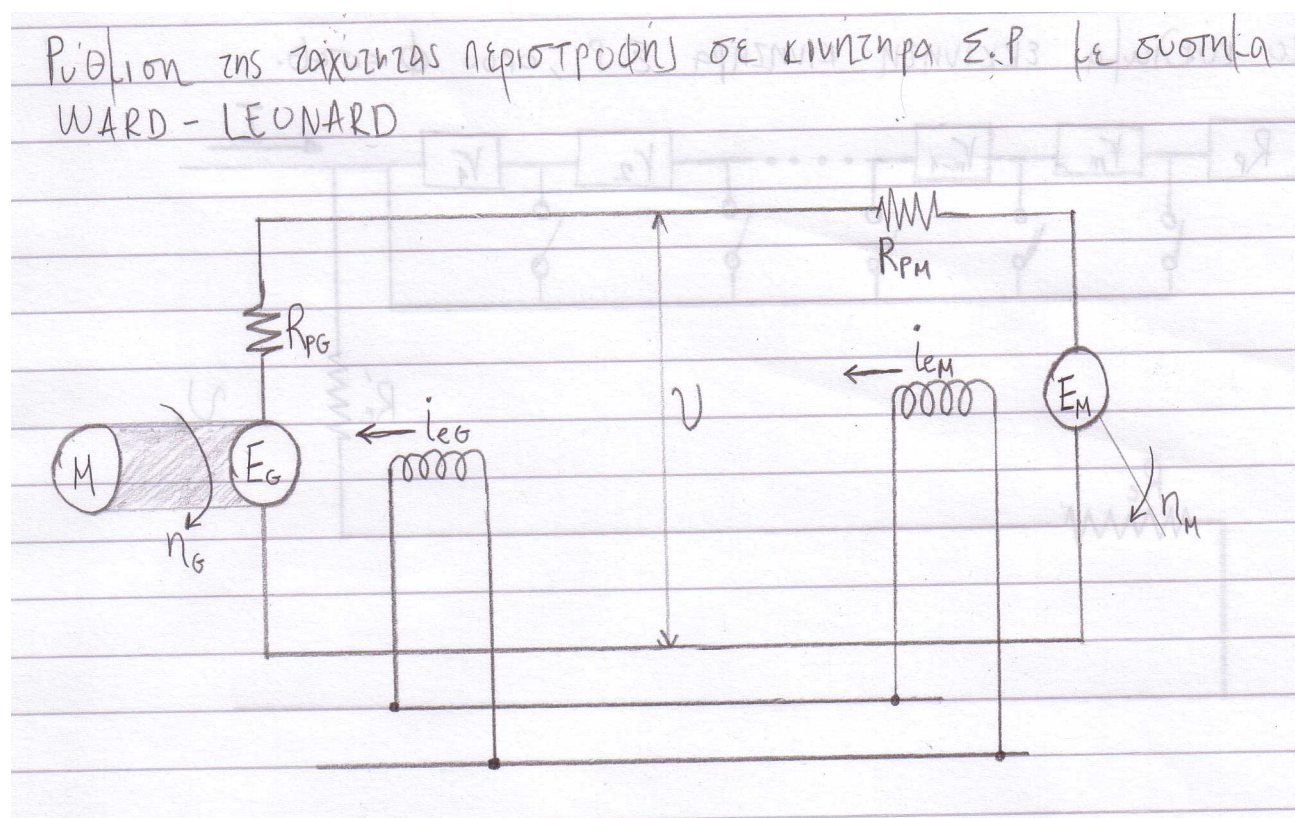 Ρύθμιση της ταχύτητας περιστροφής σε κινητηρα Σ.Ρ με συστημα
WARD - LEONARD
RPM
RPG
ieM
EM
U
ieG
M
EG
nM
nG